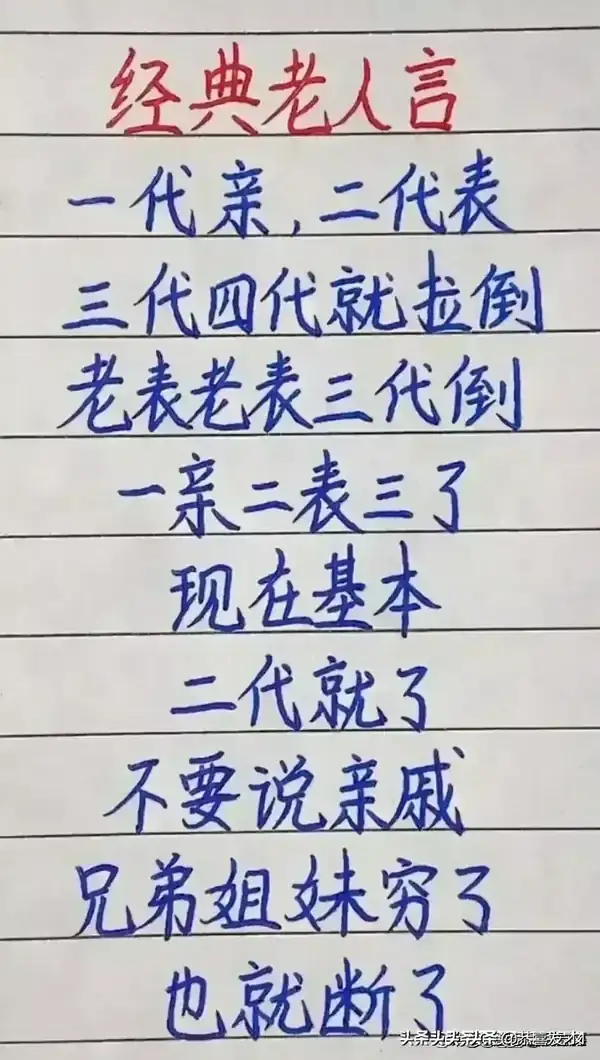 经典老人言
一代亲,二代表
三代四代就拉倒
老表老表三代倒
一亲二表三了
现在基本
二代就了
不要说亲戚
兄弟姐妹穷了
也就断了